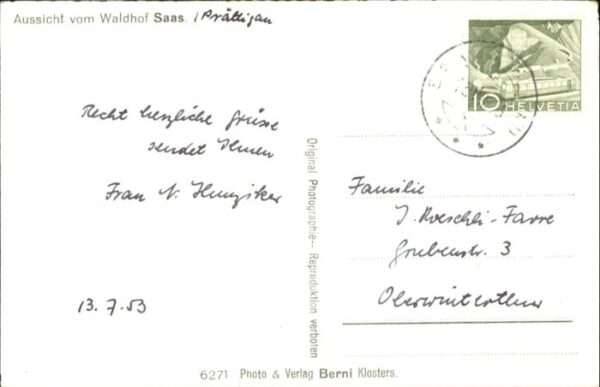 Aussicht vom Waldhof Saas. / Prättigau
10 HELVETIA
Recht herzliche Grüsse
sendet Ihnen
Frau N. Hunziker
13. 7. 53
Original Photographie-- Reproduktion verboten
Familie
J. Roeschli-Favre
Grubenstr. 3
Oberwinterthur
6271 Photo & Verlag Berni Klosters.